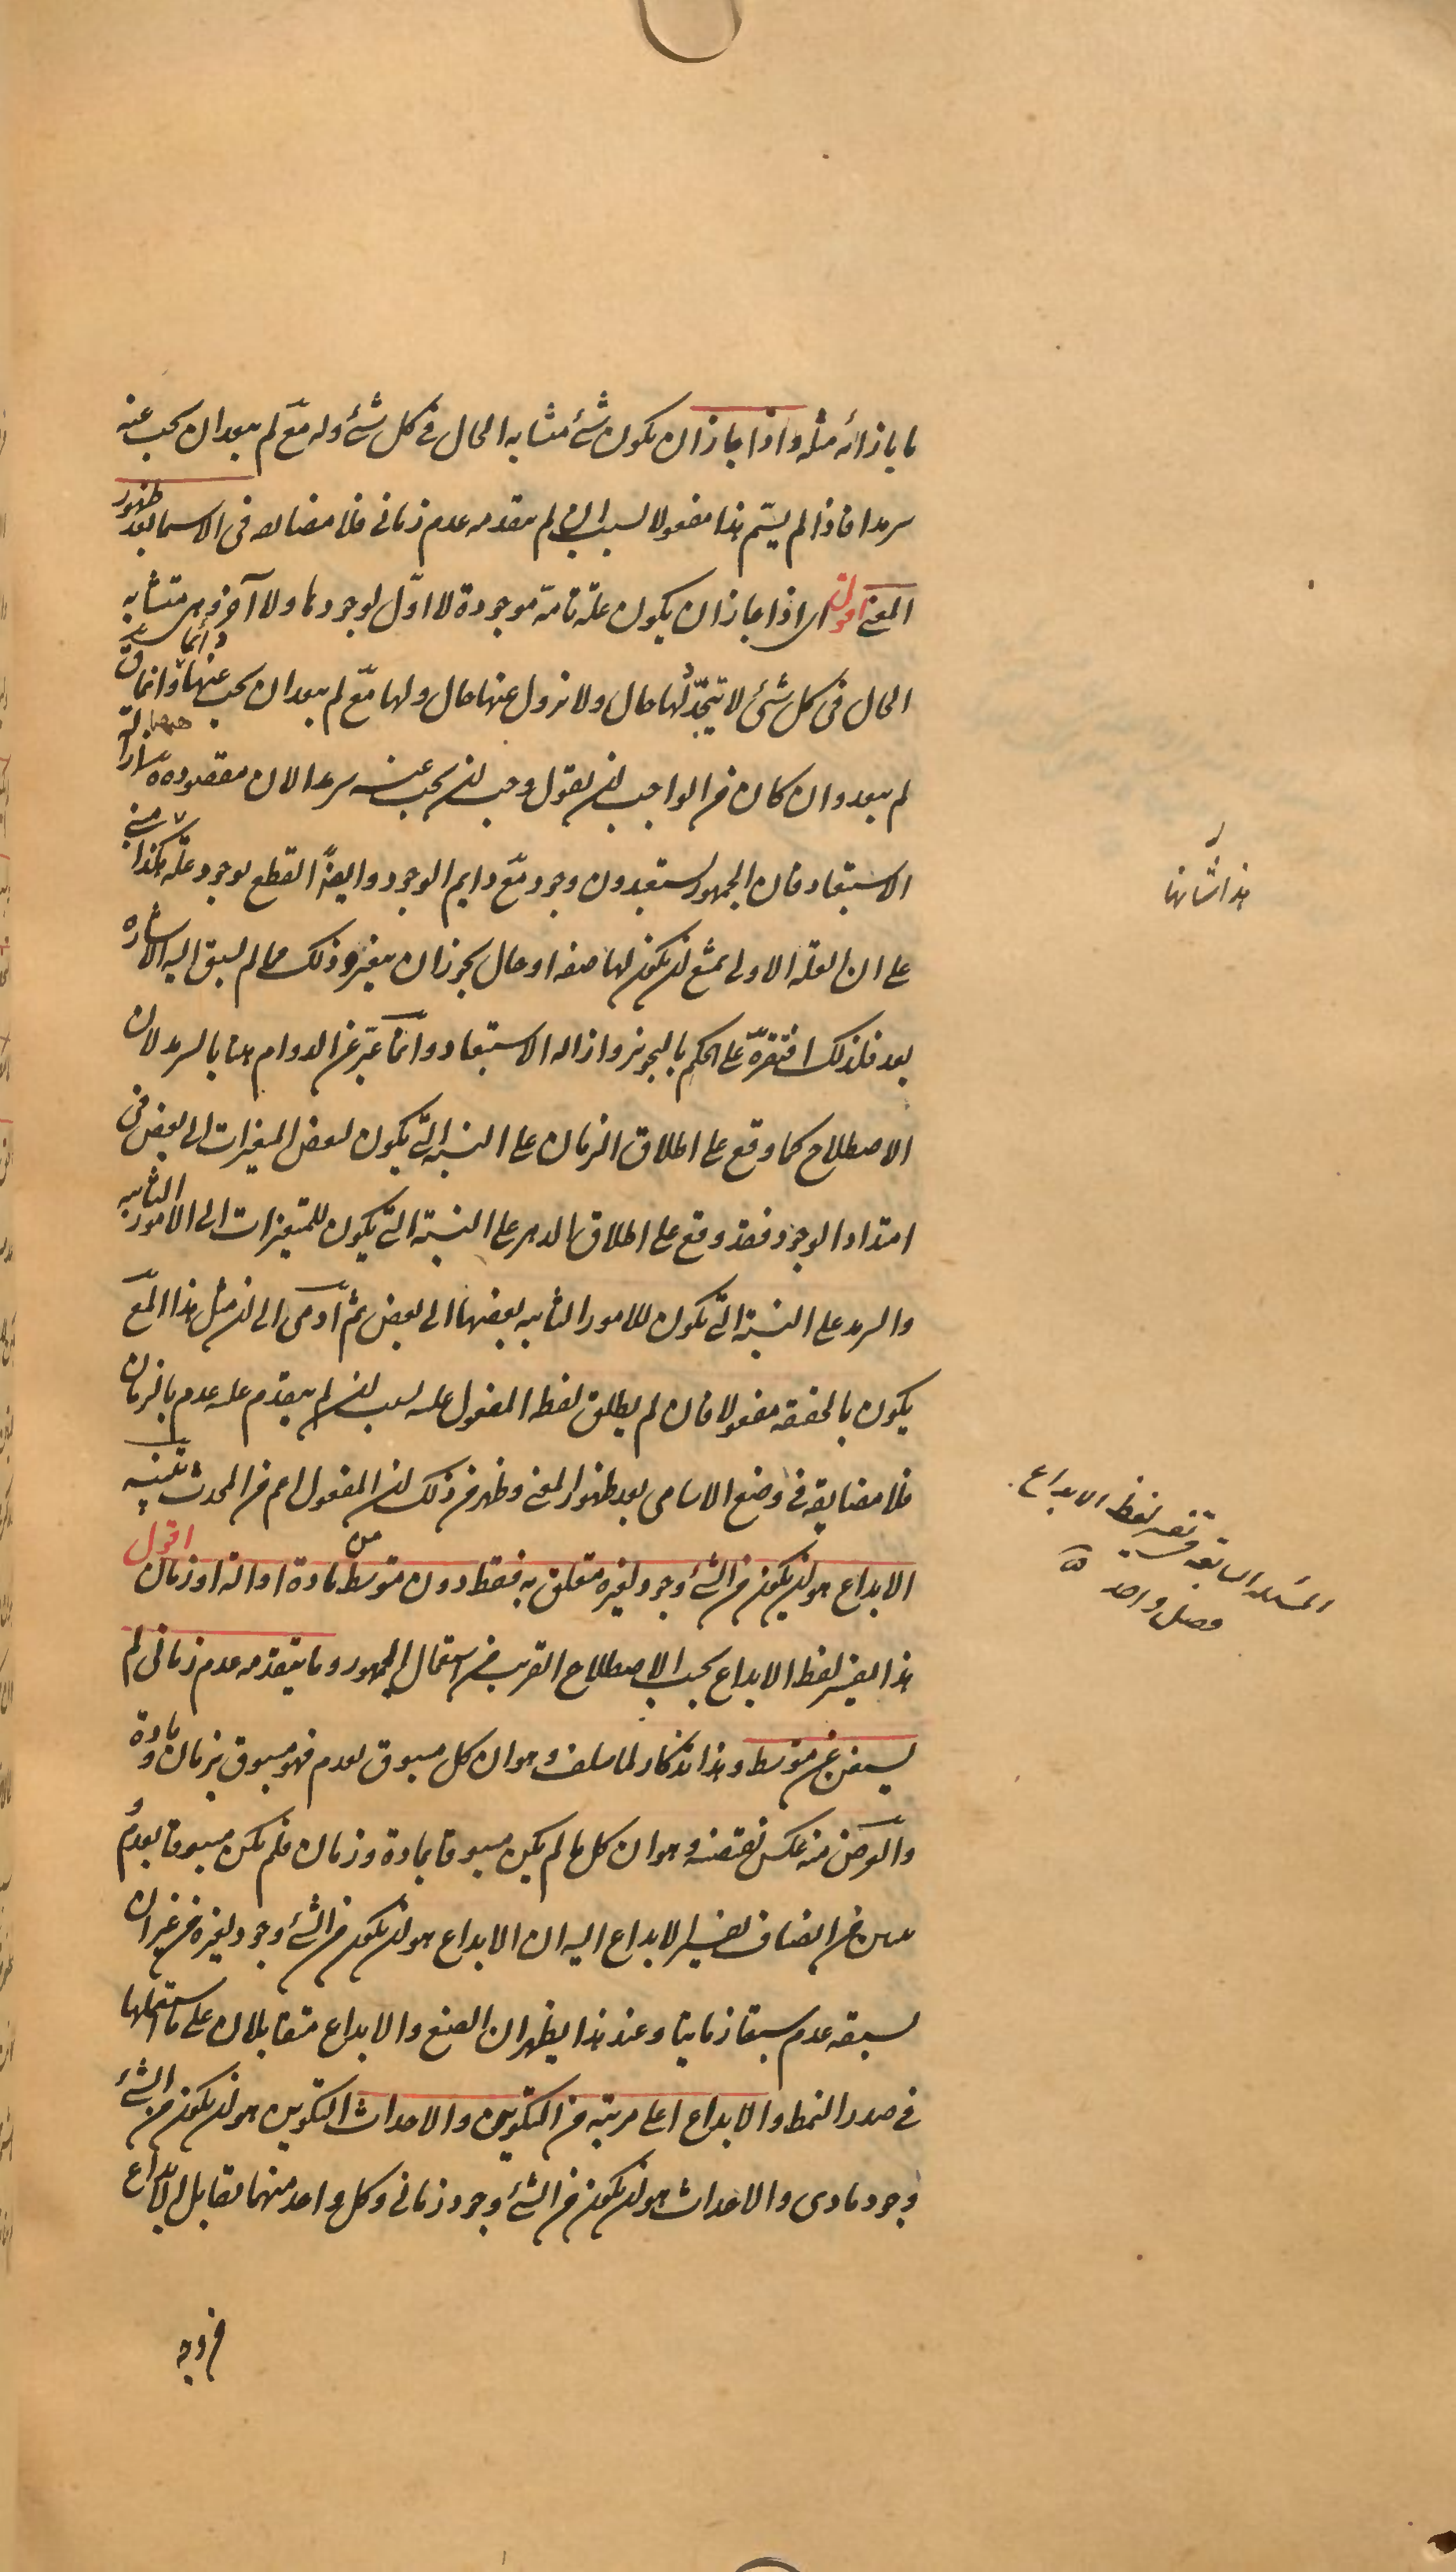 ما بازائه مثله واذا جاز ان يكون شئ متشابه الحال فى كل شئ وله مع لم يبعد ان يجب عنه
سرمدا فاذا لم يسمّ هذا مفعولا بسبب ان لم يتقدمه عدم زمانى فلا مضايقه فى الاسما بعد ظهور
المعنى اقول اى اذا جاز ان يكون علة تامة موجودة لا اوّل لوجودها ولا آخر وهى متشابه
الحال فى كل شئ لا تتجدّد لها حال ولا تزول عنها حال ولها مع لم يبعد ان يجب عنها دائما وانما ق
لم يبعد وان كان من الواجب ان يقول وجب ان يجب عنه سرمدا لان مقصوده ههنا ازالة
الاستبعاد فان الجمهور يستبعدون وجود مع دايم الوجود وايضا القطع بوجود علة هكذا مبنى
على ان العلة الاولى يمتنع ان يكون لها صفه او حال يجوز ان يتغير وذلك مما لم يسبق اليه الاشاره
بعد فلذلك اقتصر على الحكم بالتجويز وازاله الاستبعاد وانما عبّر عن الدوام هنا بالسرمد لان
الاصطلاح كما وقع على اطلاق الزمان على النسبة التى يكون لبعض المتغيرات الى بعض فى
امتداد الوجود فقد وقع على اطلاق الدهر على النسبة التى يكون للمتغيرات الى الامور الثابته
والسرمد على النسبة التى يكون للامور الثابته بعضها الى بعض ثم اومى الى ان مثل هذا المع
يكون بالحقيقه مفعولا فان لم يطلق لفظ المفعول عليه بسبب ان لم يتقدم عليه عدم بالزمان
فلا مضايقه فى وضع الاسامى بعد ظهور المعنى وظهر من ذلك ان المفعول اعم من المحدث تنبيه
الابداع هو ان يكون من الشئ وجود لغيره متعلق به فقط دون متوسط من مادة او اله او زمان اقول
هذا تفسير لفظ الابداع بحسب الاصطلاح القريب من استعمال الجمهور وما يتقدمه عدم زمانى لم
يستغن عن متوسط وهذا تذكار لما سلف وهو ان كل مسبوق بعدم فهو مسبوق بزمان ومادة
والغرض منه عكس نقيضه وهو ان كل ما لم يكن مسبوقا بمادة وزمان فلم يكن مسبوقا بعدم و
يتبين من انضاف تفسير الابداع اليه ان الابداع هو ان يكون من الشئ وجود لغيره من غير ان
يسبقه عدم سبقا زمانيا وعند هذا يظهر ان الصنع والابداع متقابلان على ما استعملها
فى صدر النمط والابداع اعلى مرتبه من التكوين والاحداث التكوين هو ان يكون من الشئ
وجود مادى والاحداث هو ان يكون من الشئ وجود زمانى وكل واحد منهما يقابل الابداع
من وجه
هذا شانها
المسئله السابقه لفظ الابداع
فصل واحد